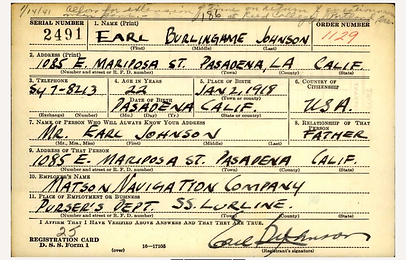 7/14/41
186
SERIAL NUMBER 1. NAME (Print) ORDER NUMBER
2491 EARL BURLINGAME JOHNSON 1129
(First) (Middle) (Last)
2. ADDRESS (Print)
1085 E. MARIPOSA ST. PASADENA, LA CALIF.
(Number and street or R. F. D. number) (Town) (County) (State)
3. TELEPHONE 4. AGE IN YEARS 5. PLACE OF BIRTH 6. COUNTRY OF CITIZENSHIP
22 JAN 2, 1918
DATE OF BIRTH (Town or county)
PASADENA CALIF. U.S.A.
(Exchange) (Number) (Mo.) (Day) (Yr.) (State or country)
7. NAME OF PERSON WHO WILL ALWAYS KNOW YOUR ADDRESS 8. RELATIONSHIP OF THAT PERSON
MR. EARL JOHNSON FATHER
(Mr., Mrs., Miss) (First) (Middle) (Last)
9. ADDRESS OF THAT PERSON
1085 E. MARIPOSA ST. PASADENA CALIF.
(Number and street or R. F. D. number) (Town) (County) (State)
10. EMPLOYER'S NAME
MATSON NAVIGATION COMPANY
11. PLACE OF EMPLOYMENT OR BUSINESS
PURSER'S DEPT. SS. LURLINE.
(Number and street or R. F. D. number) (Town) (County) (State)
I AFFIRM THAT I HAVE VERIFIED ABOVE ANSWERS AND THAT THEY ARE TRUE.
25
REGISTRATION CARD
D. S. S. Form 1 (over) 16—17105 (Registrant's signature)